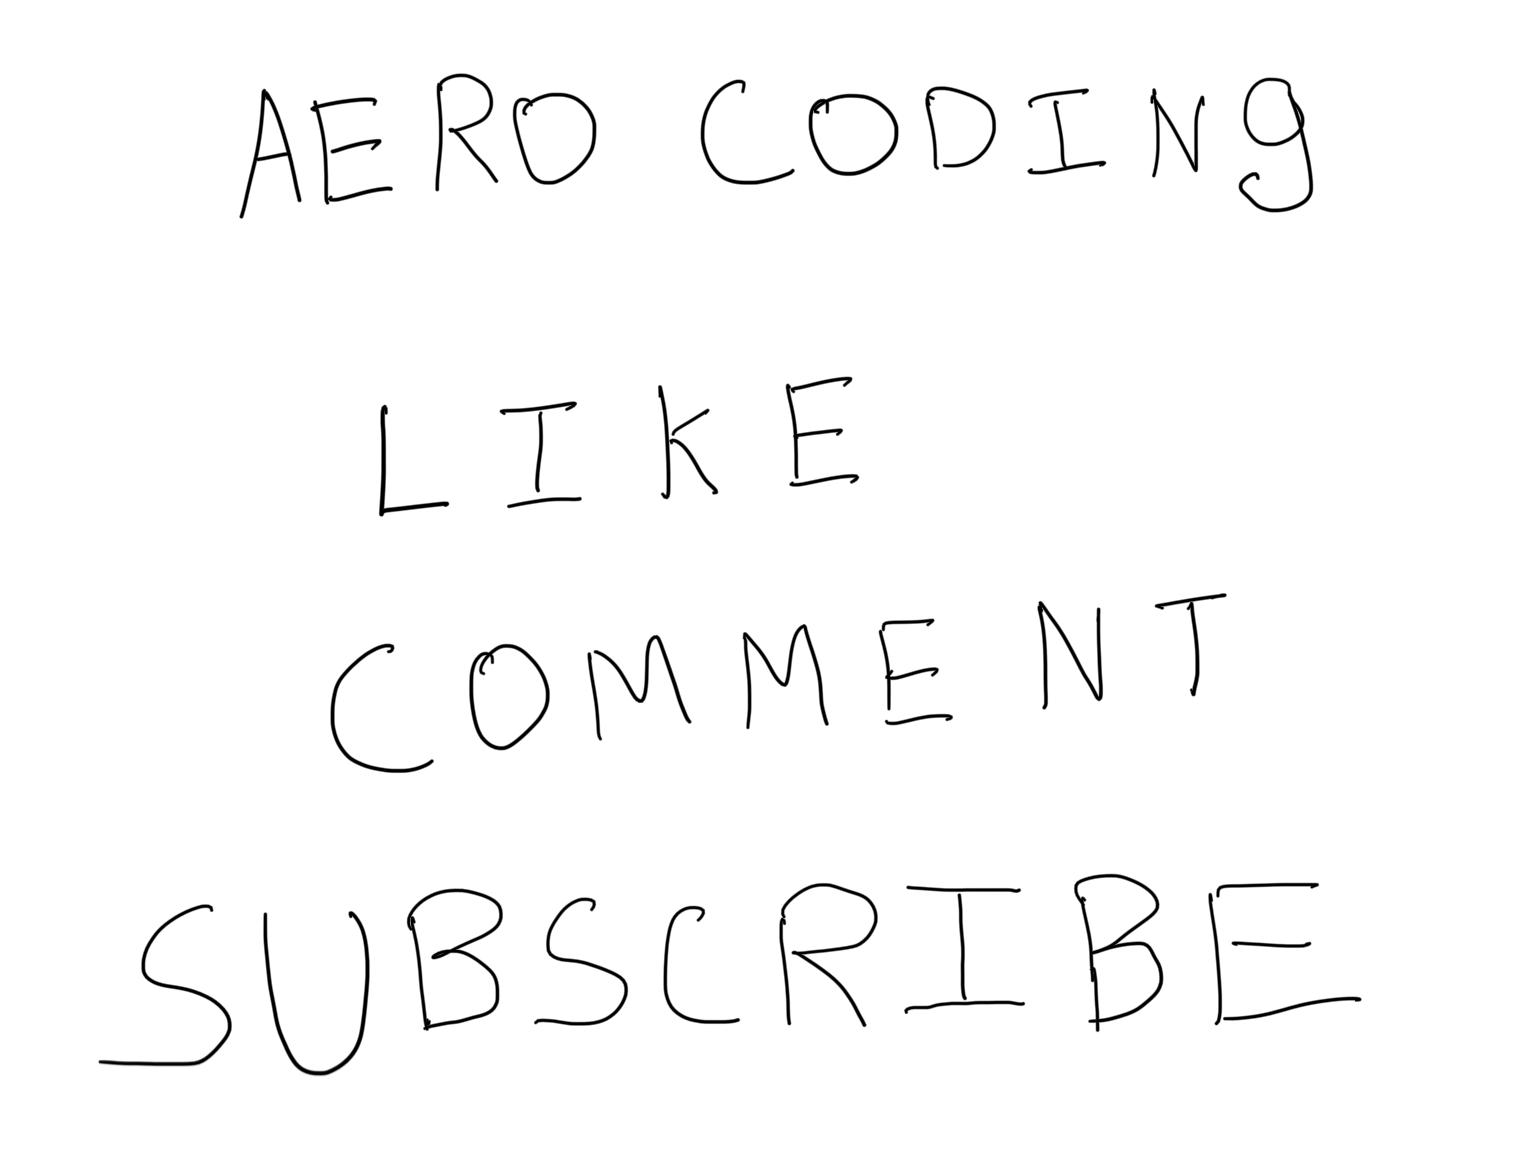 AERO CODINg
LIKE
COMMENT
SUBSCRIBE